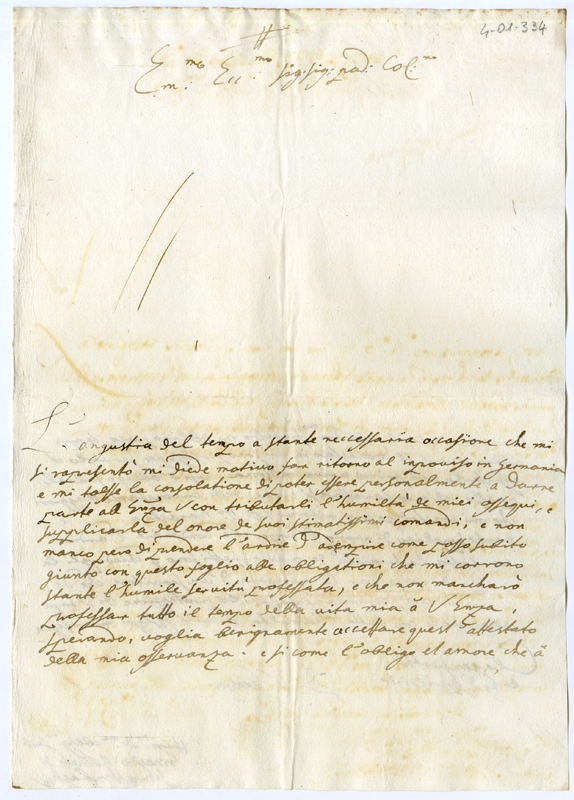 4-01-334
E.mo Ecc.mo sig: sig: padr: Col.mo
L'angustia del tempo a stante neccessaria occasione che mi
si rapresentò mi diede motivo far ritorno al inproviso in Germania
e mi tolse la consolatione di poter essere personalmente a darne
parte all Emza V con tributarli l'humiltà de miei ossequi, e
supplicarla del onore de suoi stimatissimi comandi, e non
manco però di prendere l'ardire d'adempire come posso subito
giunto con questo foglio alle obligationi che mi corrono
stante l'humile servitù professata, e che non mancharò
professar tutto il tempo della vita mia à V Emza,
sperando, voglia benignamente accettare quest attestato
della mia osservanza. e si come l'obligo et amore che à